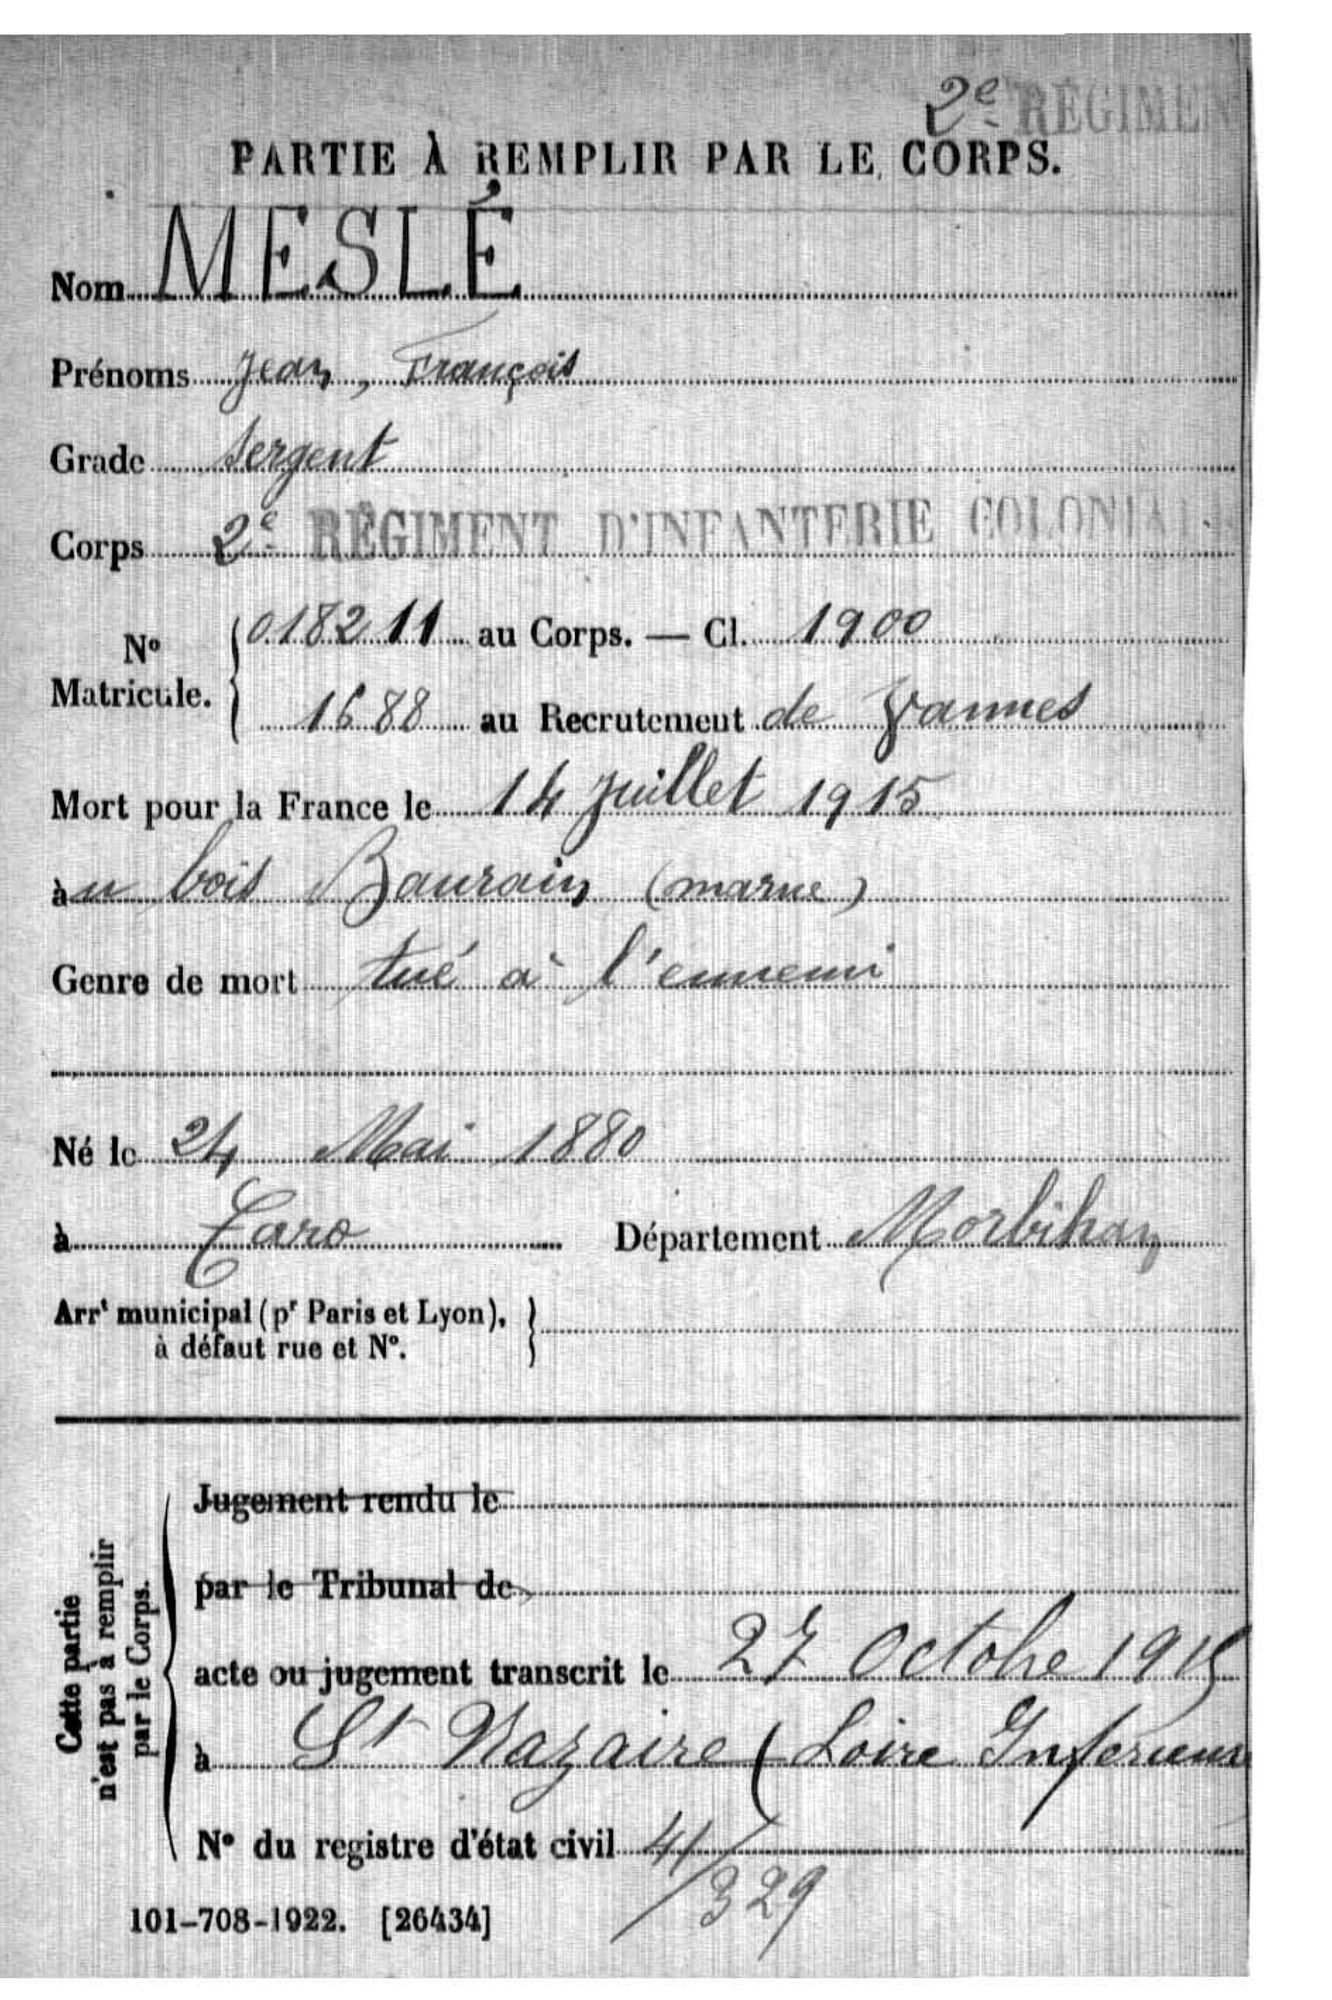 2e REGIMEN
PARTIE À REMPLIR PAR LE CORPS.
Nom MESLÉ
Prénoms Jean, François
Grade Sergent
Corps 2e RÉGIMENT D'INFANTERIE COLONIALE
No Matricule. { 018211 au Corps. — Cl. 1900
1688 au Recrutement de Vannes
Mort pour la France le 14 Juillet 1915
àu bois Baurain (marne)
Genre de mort tué à l'ennemi
Né le 24 Mai 1880
à Caro Département Morbihan
Arrt municipal (pr Paris et Lyon), }
à défaut rue et No.
Cette partie
n'est pas à remplir
par le Corps.
Jugement rendu le
par le Tribunal de
acte ou jugement transcrit le 27 Octobre 1915
à St Nazaire (Loire Inferieure
No du registre d'état civil 41/329
101-708-1922. [26434]